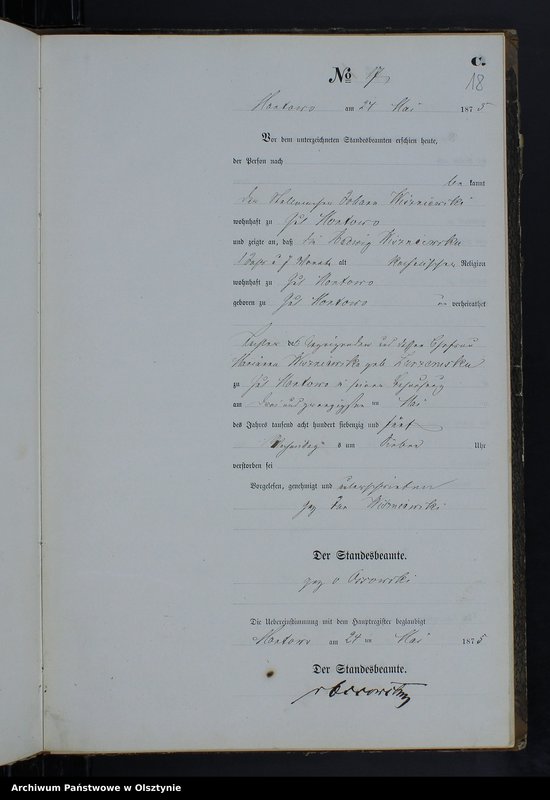 C.
No 17
18
Montowo am 24 Mai 1875
Vor dem unterzeichneten Standesbeamten erschien heute,
der Person nach
be kannt
der Johann Wiszniewski
wohnhaft zu Gut Montowo
und zeigte an, daß die Hedwig Wiszniewska
1 Jahr u 7 Monate alt katholischer Religion
wohnhaft zu Gut Montowo
geboren zu Gut Montowo un verheirathet
Tochter des Anzeigenden und dessen Ehefrau
Marianna Wiszniewska geb
zu Gut Montowo in seiner Behausung
am drei und zwanzigsten ten Mai
des Jahres tausend acht hundert siebenzig und fünf
Nachmittags s um sieben Uhr
verstorben sei
Vorgelesen, genehmigt und unterschrieben
gez Jan Wiszniewski
Der Standesbeamte.
gez v Ossowski
Die Uebereinstimmung mit dem Hauptregister beglaubigt
Montowo am 24 ten Mai 1875
Der Standesbeamte.
v Ossowski
Archiwum Państwowe w Olsztynie